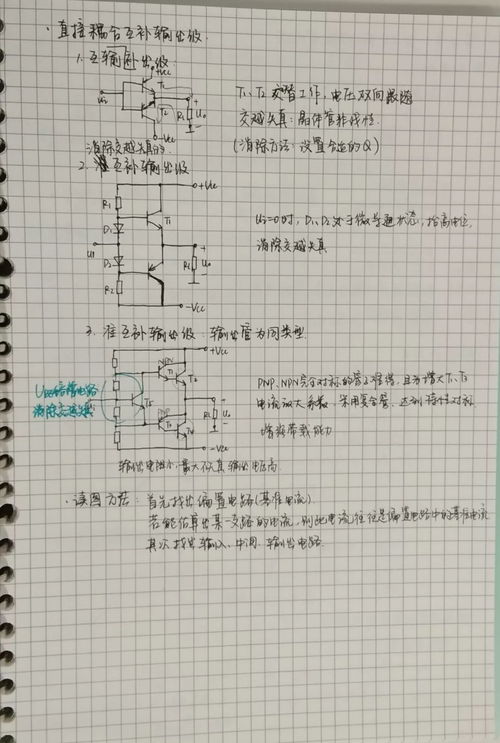 · 直接耦合互补输出级.
1. 互输补出级:
+Vcc
T1
Ui
T2
RL
+
Uo
-
-Vcc
T1、T2 交替工作, 电压双向跟随
交越失真: 晶体管非线性.
(消除方法: 设置合适的Q)
消除交越失真的
2. 互补输出级
+Vcc
R1
T1
D1
UI
D2
R2
RL
+
Uo
-
-Vcc
Ui=0时, D1、D2处于微导通状态, 抬高电位,
消除交越失真
3. 准互补输出级: 输出管为同类型.
+Vcc
NPN
T1
T2
UBE倍增电路
消除交越失真
T5
PNP
T3
T4
RL
+
Uo
-
-Vcc
PNP、NPN完全对称的管子难得, 且为增大T1、T3
电流放大系数, 采用复合管, 达到特性对称
增强带载能力
输出电阻小, 最大不失真输出电压高.
· 读图方法: 首先找出偏置电路(基准电流).
若能估算出某一支路的电流, 则此电流往往是偏置电路中的基准电流
其次找出输入、中间、输出电路.